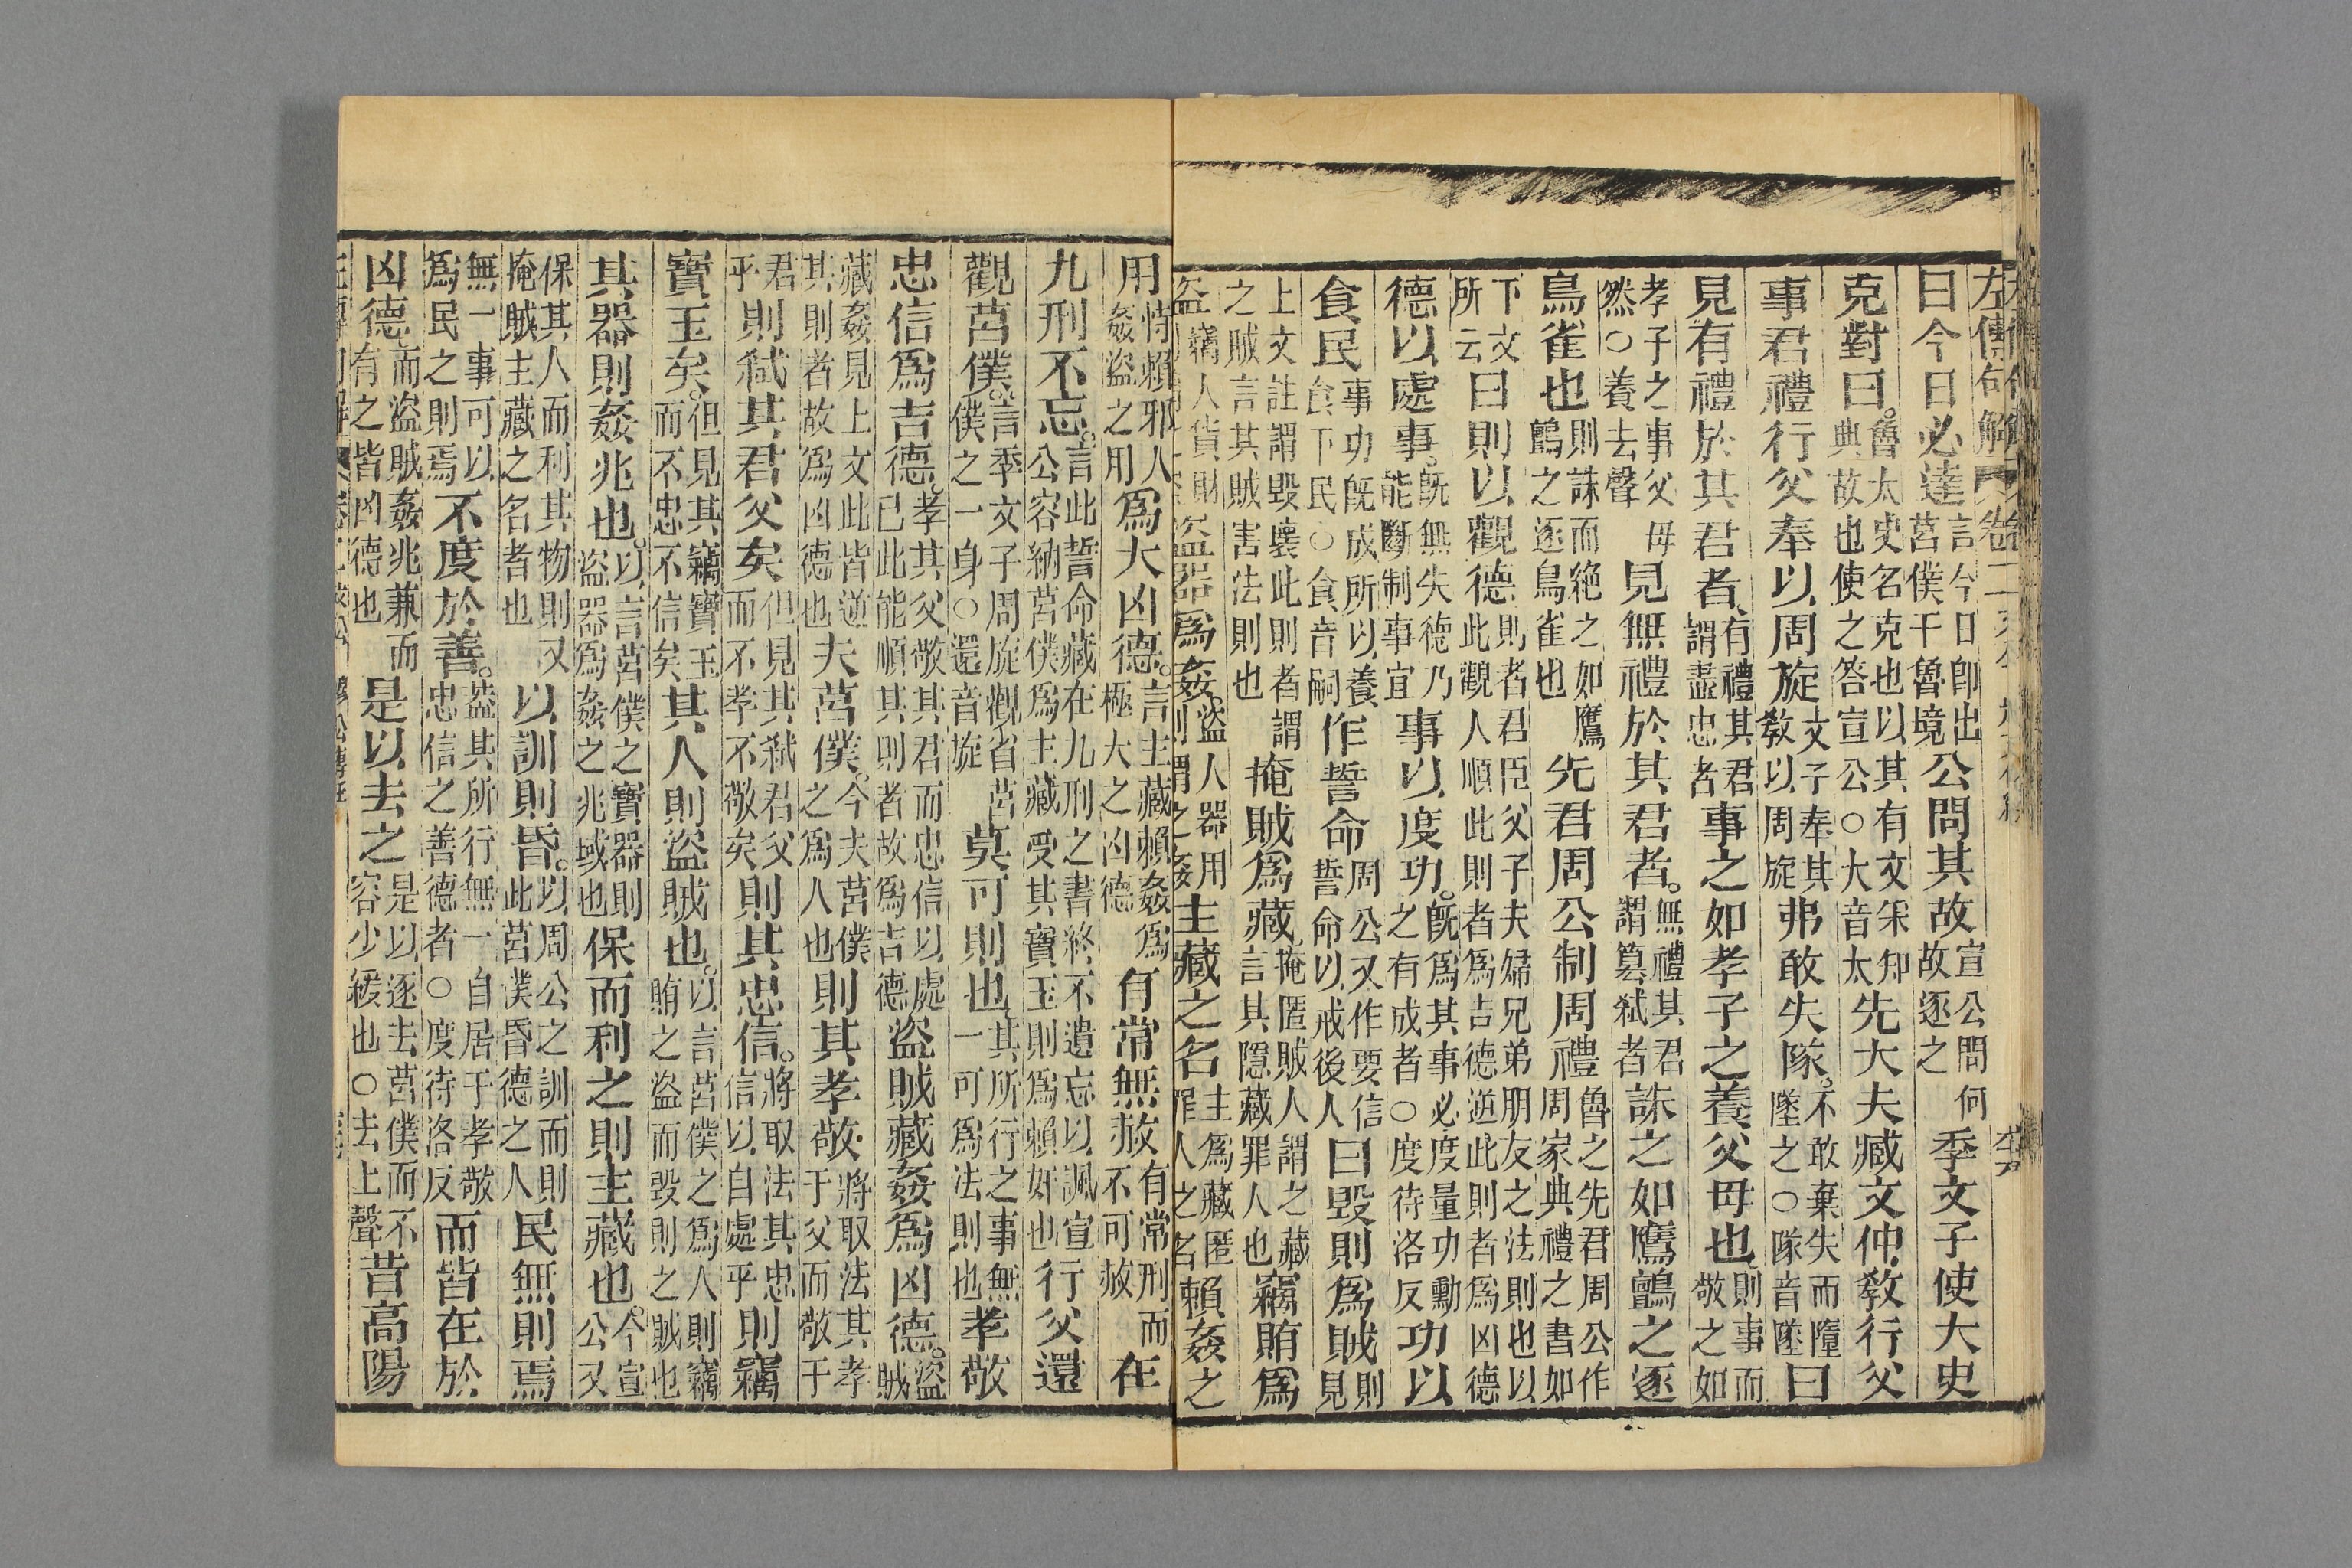 左傳句解 卷二
曰今日必達言今日即出莒僕于魯境公問其故宣公問何故逐之季文子使大史
克對曰魯太史名克也以其有文采知典故也使之答宣公○大音太先大夫臧文仲教行父
事君禮行父奉以周旋文子奉其教以周旋弗敢失隊不敢棄失而隳墜之○隊音墜曰
見有禮於其君者有禮其君謂盡忠者事之如孝子之養父母也則事而敬之如
孝子之事父母然○養去聲見無禮於其君者無禮其君謂篡弒者誅之如鷹鸇之逐
鳥雀也則誅而絕之如鷹鸇之逐鳥雀也先君周公制周禮魯之先君周公作周家典禮之書如
下文所云曰則以觀德則者君臣父子夫婦兄弟朋友之法則也以此觀人順此則者爲吉德逆此則者爲凶德
德以處事既無失德乃能斷制事宜事以度功既爲其事必度量功勳之有成者○度待洛反功以
食民事功既成所以養食下民○食音嗣作誓命周公又作要信誓命以戒後人曰毀則爲賊則見
上文註謂毀壞此則者謂之賊言其賊害法則也掩賊爲藏掩匿賊人謂之藏言其隱藏罪人也竊賄爲
盜竊人貨財盜器爲姦盜人器用則謂之姦主藏之名主爲藏匿罪人之名賴姦之
用恃賴邪人姦盜之用爲大凶德言主藏賴姦爲極大之凶德有常無赦有常刑而不可赦在
九刑不忘言此誓命藏在九刑之書終不遺忘以諷宣公容納莒僕爲主藏受其寶玉則爲賴奸也行父還
觀莒僕言季文子周旋觀省莒僕之一身○還音旋莫可則也其所行之事無一可爲法則也孝敬
忠信爲吉德孝其父敬其君而忠信以處已此能順其則者故爲吉德盜賊藏姦爲凶德盜賊
藏姦見上文此皆逆其則者故爲凶德也夫莒僕今夫莒僕之爲人也則其孝敬將取法其孝于父而敬于
君乎則弒其君父矣但見其弒君父而不孝不敬矣則其忠信將取法其忠信以自處乎則竊
寶玉矣但見其竊寶玉而不忠不信矣其人則盜賊也以言莒僕之爲人則竊賄之盜而毀則之賊也
其器則姦兆也以言莒僕之寶器則盜器爲姦之兆域也保而利之則主藏也今宣公又
保其人而利其物則又掩賊主藏之名者也以訓則昏以周公之訓而則此莒僕昏德之人民無則焉
無一事可以爲民之則焉不度於善蓋其所行無一自居于孝敬忠信之善德者○度待洛反而皆在於
凶德而盜賊姦兆兼而有之皆凶德也是以去之是以逐去莒僕而不容少緩也○去上聲昔高陽